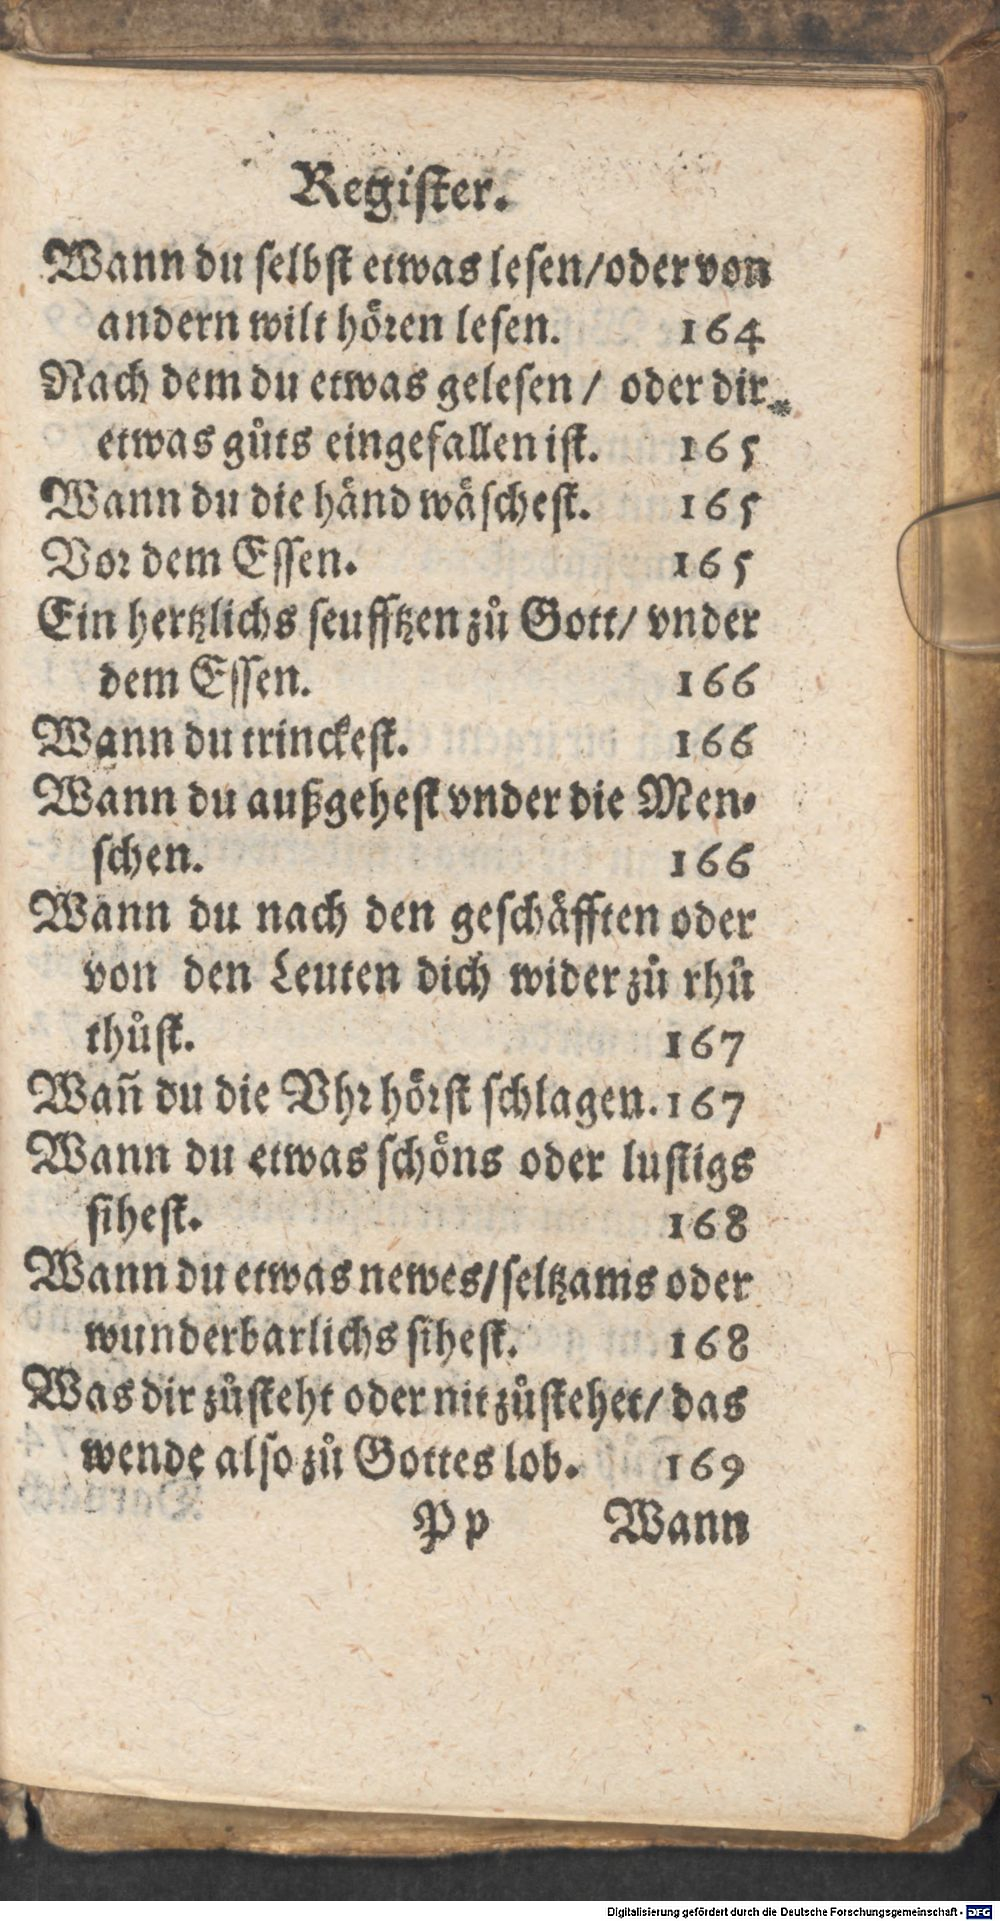 Register.
Wann du selbst etwas lesen/oder von
andern wilt hören lesen. 164
Nach dem du etwas gelesen / oder dir
etwas gůts eingefallen ist. 165
Wann du die händ wäschest. 165
Vor dem Essen. 165
Ein hertzlichs seufftzen zů Gott/ vnder
dem Essen. 166
Wann du trinckest. 166
Wann du außgehest vnder die Men-
schen. 166
Wann du nach den geschäfften oder
von den Leuten dich wider zů rhů
thůst. 167
Wañ du die Vhr hörst schlagen. 167
Wann du etwas schöns oder lustigs
sihest. 168
Wann du etwas newes/seltzams oder
wunderbarlichs sihest. 168
Was dir zůsteht oder nit zůstehet/ das
wende also zů Gottes lob. 169
Pp Wann
Digitalisierung gefördert durch die Deutsche Forschungsgemeinschaft - DFG